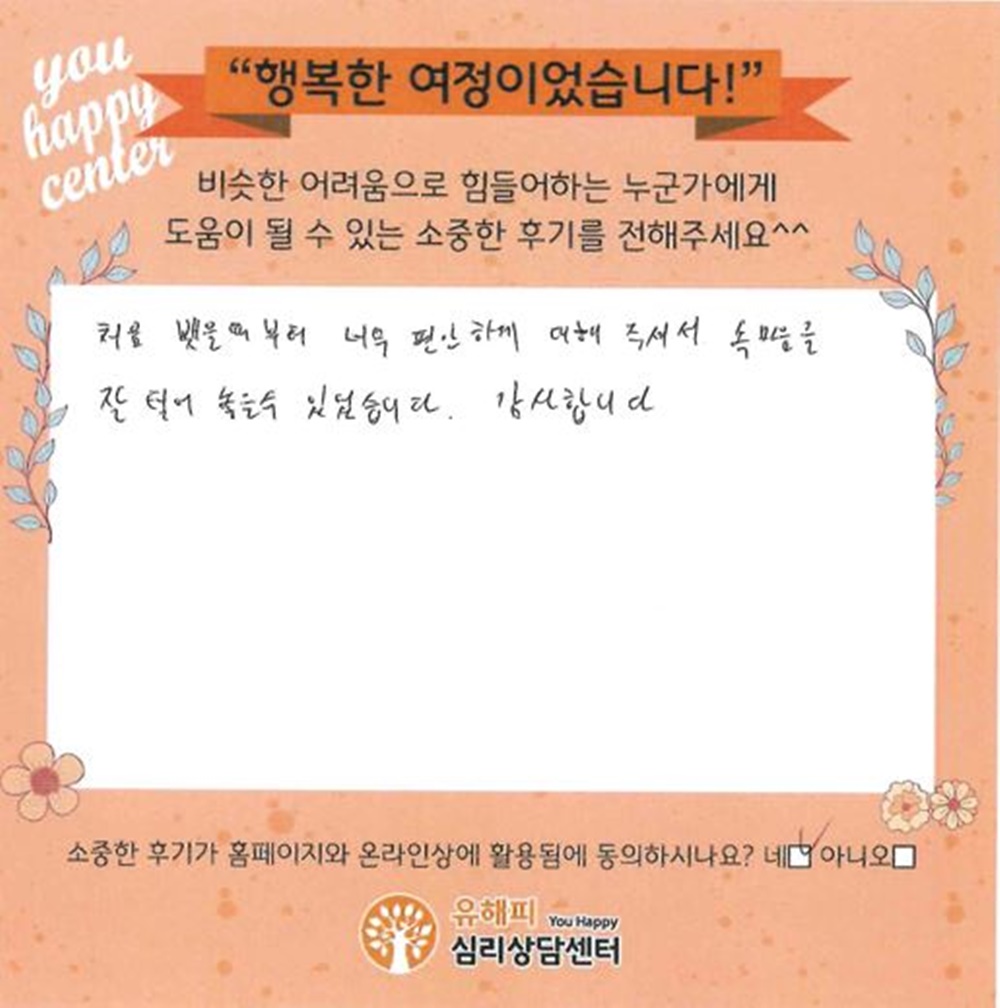 you
happy
center
“행복한 여정이었습니다!”
비슷한 어려움으로 힘들어하는 누군가에게
도움이 될 수 있는 소중한 후기를 전해주세요^^
처음 뵀을때부터 너무 편안하게 대해 주셔서 속마음을
잘 털어 놓을수 있었습니다. 감사합니다
소중한 후기가 홈페이지와 온라인상에 활용됨에 동의하시나요? 네 아니오
유해피 You Happy
심리상담센터